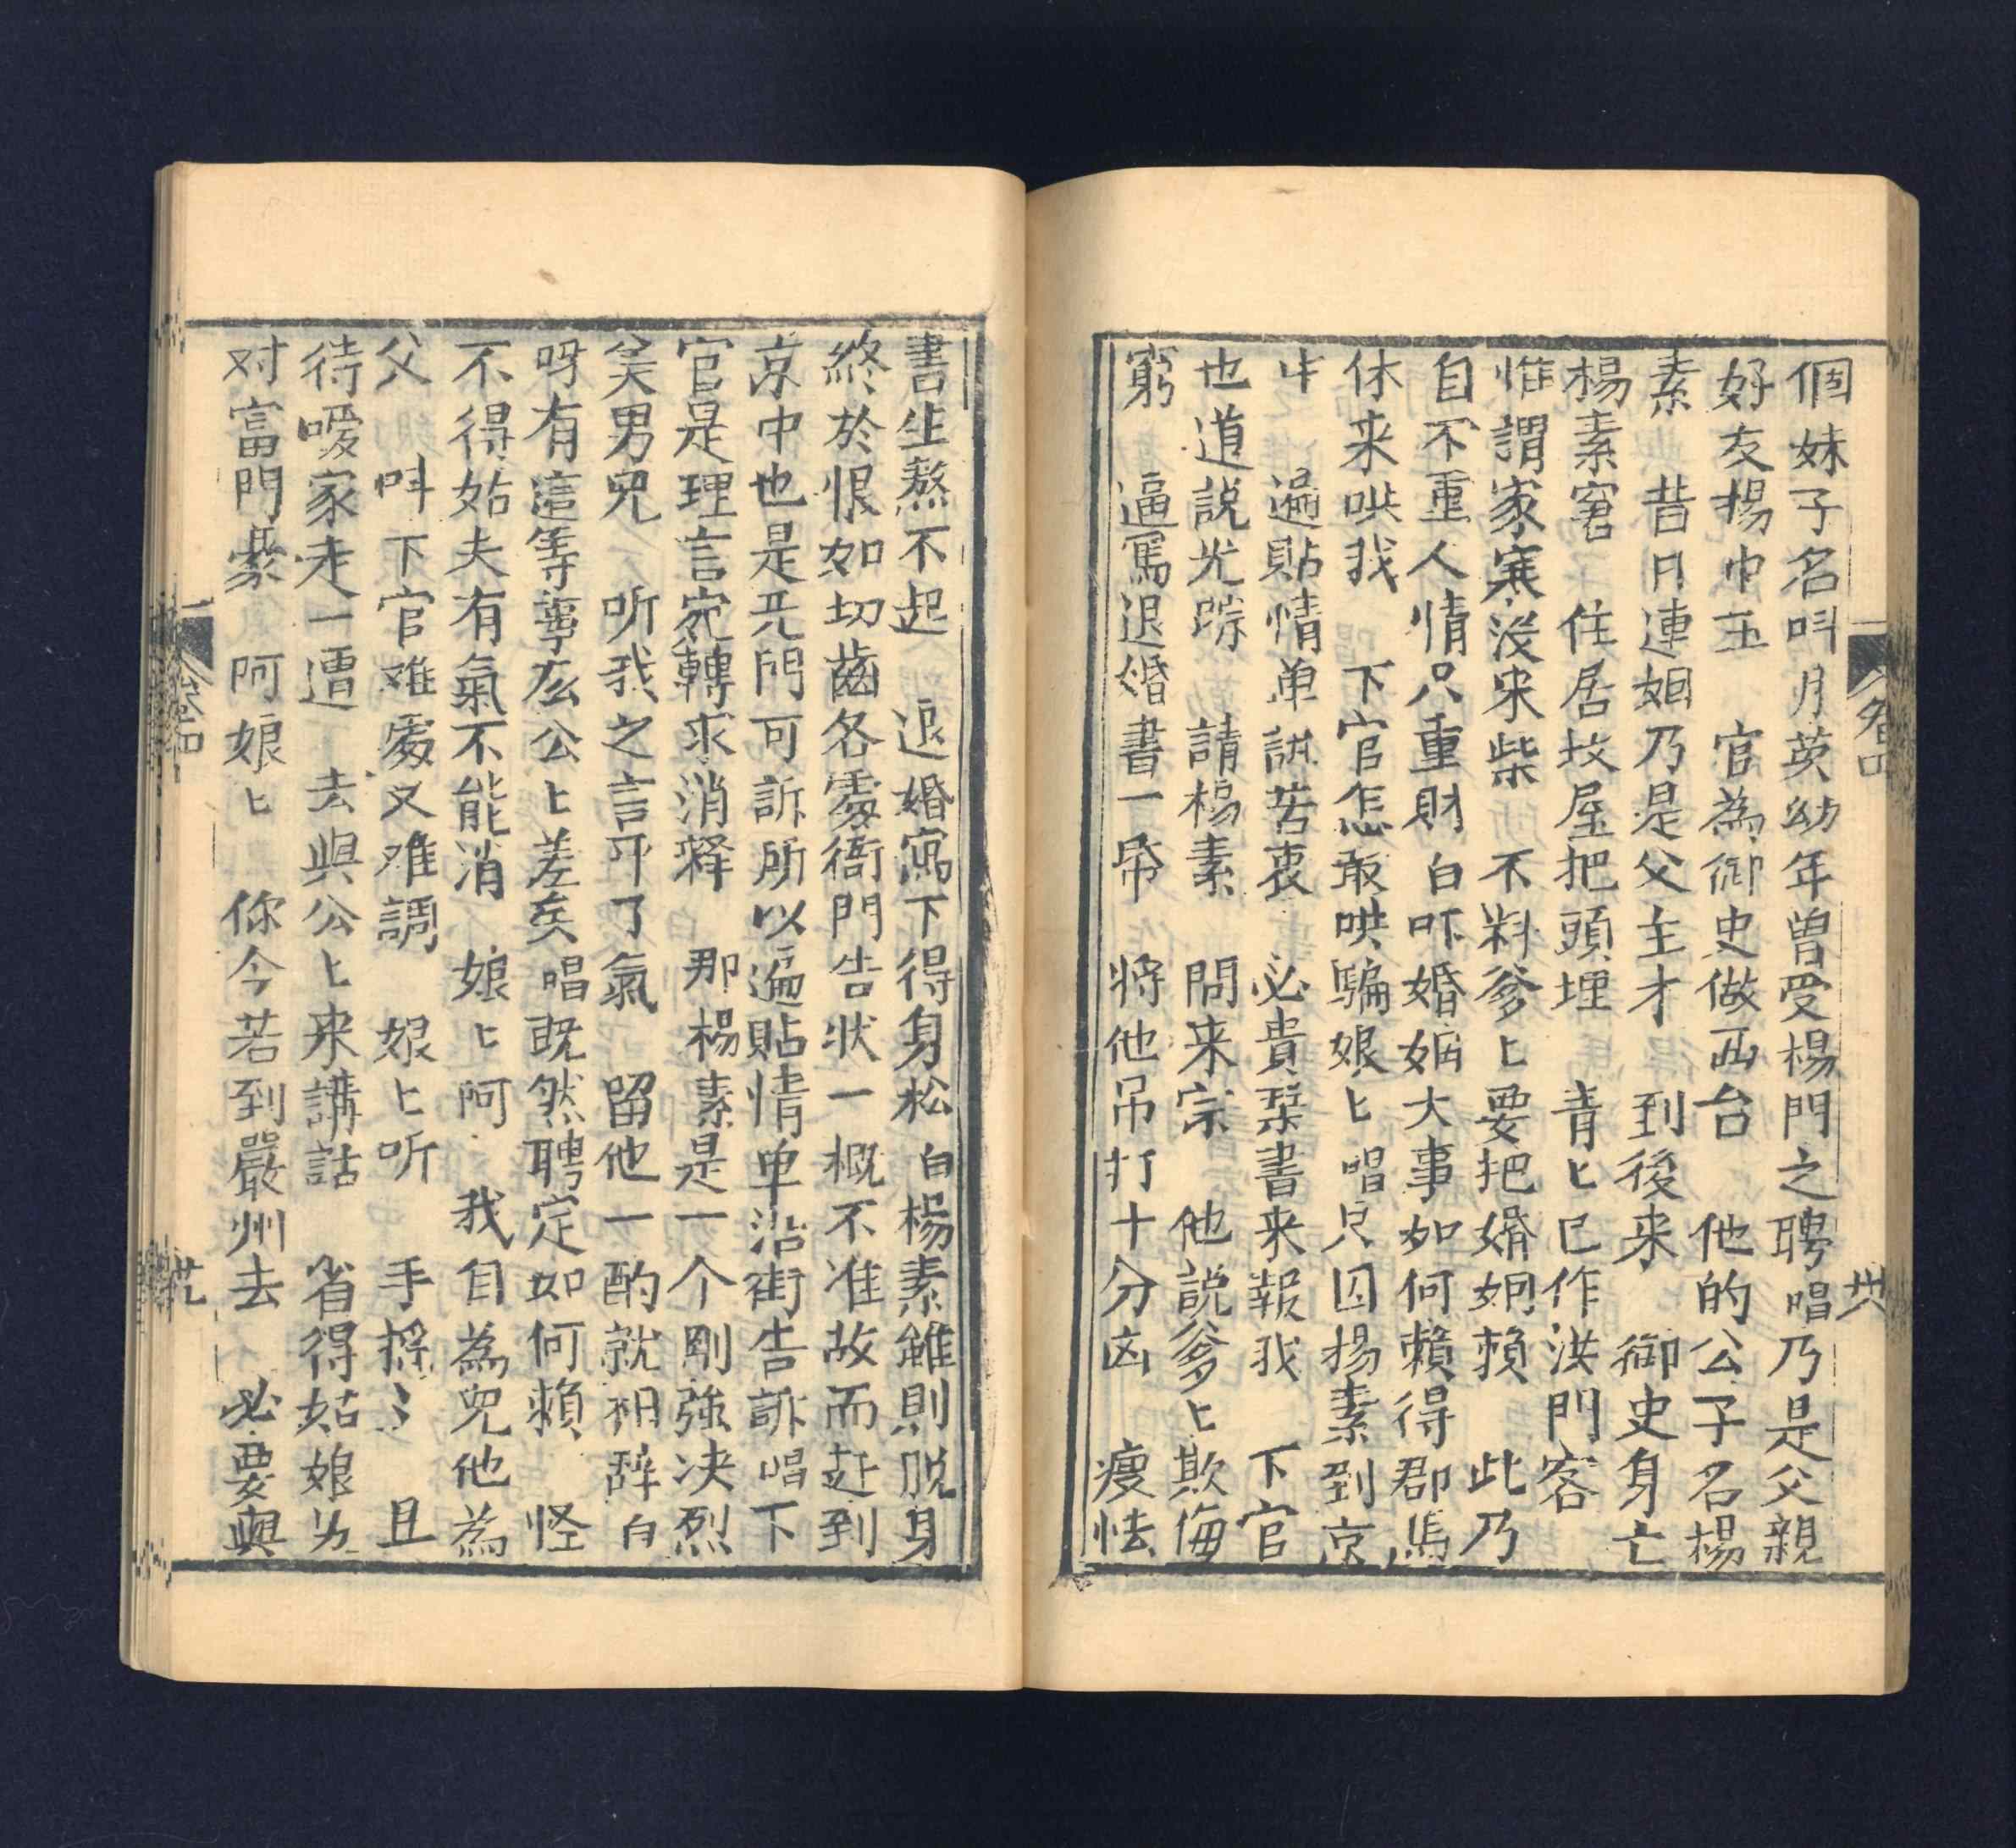 個妹子名呌月英幼年曾受楊門之聘唱乃是父親
好友楊中玉　官為御史做西台　他的公子名楊
素　昔日連姻乃是父主才　到後来　御史身亡
楊素窘　住居坟屋把頭埋　青匕已作洪門客
惟謂家寒没米柴　不料爹匕要把婚姻賴　此乃
自不重人情只重財白吓婚姻大事如何賴得郡馬
休来哄我　下官怎敢哄騙娘匕唱只因楊素到京
中　遍貼情单訴苦衷　必貴琹書来報我　下官
也道説尤踪　請楊素　問来宗　他説爹匕欺侮
窮　逼寫退婚書一帋　将他吊打十分凶　瘦怯
書生熬不起　退婚寫下得身松白楊素雖則脱身
終於恨如切齒各處衙門告状一概不准故而赶到
京中也是无門可訴所以遍貼情单沿街告訴唱下
官是理言宛轉求消释　那楊素是一个剛強决烈
美男兒　听我之言平了氣　留他一酌就相辞白
呀有這等事庅公匕差矣唱既然聘定如何賴　怪
不得姑夫有氣不能消　娘匕阿　我自為兒他為
父　呌下官难處又难調　娘匕听　手搖〻　且
待噯家走一遭　去與公匕来講話　省得姑娘为
对富門豪　阿娘匕　你今若到嚴州去　必要與
卷四
卷四
廿